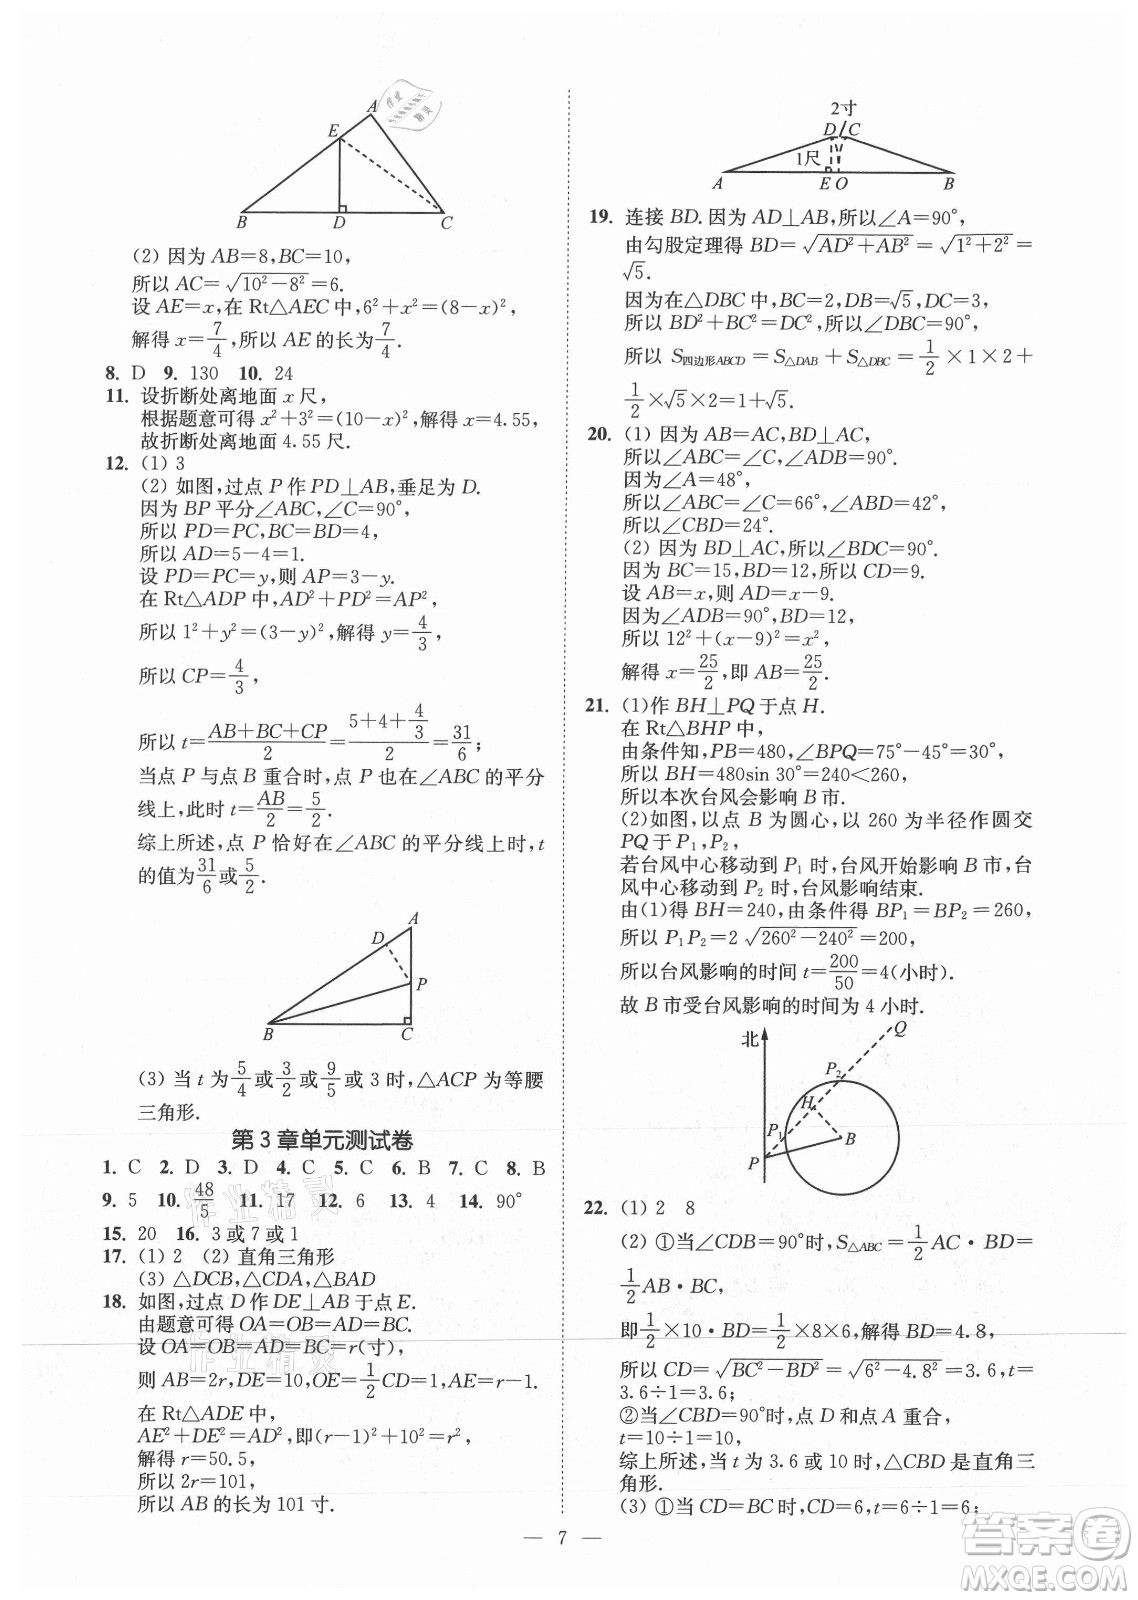 A
E
B
D
C
(2) 因为 AB=8,BC=10,
所以 AC=√(10²-8²)=6.
设 AE=x,在 Rt△AEC 中,6²+x²=(8-x)²,
解得 x=7/4,所以 AE 的长为7/4.
8. D 9. 130 10. 24
11. 设折断处离地面 x 尺,
根据题意可得 x²+3²=(10-x)²,解得 x=4.55,
故折断处离地面 4.55 尺.
12. (1) 3
(2) 如图,过点 P 作 PD⊥AB,垂足为 D.
因为 BP 平分∠ABC,∠C=90°,
所以 PD=PC,BC=BD=4,
所以 AD=5-4=1.
设 PD=PC=y,则 AP=3-y.
在 Rt△ADP 中,AD²+PD²=AP²,
所以 1²+y²=(3-y)²,解得 y=4/3,
所以 CP=4/3,
所以 t=(AB+BC+CP)/2=(5+4+4/3)/2=31/6;
当点 P 与点 B 重合时,点 P 也在∠ABC 的平分
线上,此时 t=AB/2=5/2.
综上所述,点 P 恰好在∠ABC 的平分线上时,t
的值为31/6或5/2.
A
D
P
B
C
(3) 当 t 为5/4或3/2或9/5或 3 时,△ACP 为等腰
三角形.
第 3 章单元测试卷
1. C 2. D 3. D 4. C 5. C 6. B 7. C 8. B
9. 5 10. 48/5 11. 17 12. 6 13. 4 14. 90°
15. 20 16. 3 或 7 或 1
17. (1) 2 (2) 直角三角形
(3) △DCB,△CDA,△BAD
18. 如图,过点 D 作 DE⊥AB 于点 E.
由题意可得 OA=OB=AD=BC.
设 OA=OB=AD=BC=r(寸),
则 AB=2r,DE=10,OE=1/2CD=1,AE=r-1.
在 Rt△ADE 中,
AE²+DE²=AD²,即(r-1)²+10²=r²,
解得 r=50.5,
所以 2r=101,
所以 AB 的长为 101 寸.
2寸
D C
1尺
A E O B
19. 连接 BD. 因为 AD⊥AB,所以∠A=90°,
由勾股定理得 BD=√(AD²+AB²)=√(1²+2²)=
√5.
因为在△DBC 中,BC=2,DB=√5,DC=3,
所以 BD²+BC²=DC²,所以∠DBC=90°,
所以 S四边形ABCD=S△DAB+S△DBC=1/2×1×2+
1/2×√5×2=1+√5.
20. (1) 因为 AB=AC,BD⊥AC,
所以∠ABC=∠C,∠ADB=90°.
因为∠A=48°,
所以∠ABC=∠C=66°,∠ABD=42°,
所以∠CBD=24°.
(2) 因为 BD⊥AC,所以∠BDC=90°.
因为 BC=15,BD=12,所以 CD=9.
设 AB=x,则 AD=x-9.
因为∠ADB=90°,BD=12,
所以 12²+(x-9)²=x²,
解得 x=25/2,即 AB=25/2.
21. (1)作 BH⊥PQ 于点 H.
在 Rt△BHP 中,
由条件知,PB=480,∠BPQ=75°-45°=30°,
所以 BH=480sin 30°=240<260,
所以本次台风会影响 B 市.
(2)如图,以点 B 为圆心,以 260 为半径作圆交
PQ于 P₁,P₂,
若台风中心移动到 P₁ 时,台风开始影响 B 市,台
风中心移动到 P₂ 时,台风影响结束.
由(1)得 BH=240,由条件得 BP₁=BP₂=260,
所以 P₁P₂=2√(260²-240²)=200,
所以台风影响的时间 t=200/50=4(小时).
故 B 市受台风影响的时间为 4 小时.
北
Q
P₂
H
P₁
B
P
22. (1) 2 8
(2) ①当∠CDB=90°时,S△ABC=1/2AC·BD=
1/2AB·BC,
即1/2×10·BD=1/2×8×6,解得 BD=4.8,
所以 CD=√(BC²-BD²)=√(6²-4.8²)=3.6,t=
3.6÷1=3.6;
②当∠CBD=90°时,点 D 和点 A 重合,
t=10÷1=10,
综上所述,当 t 为 3.6 或 10 时,△CBD 是直角三
角形.
(3) ①当 CD=BC 时,CD=6,t=6÷1=6;
— 7 —
作业精灵
作业精灵
答案圈
MXQE.COM